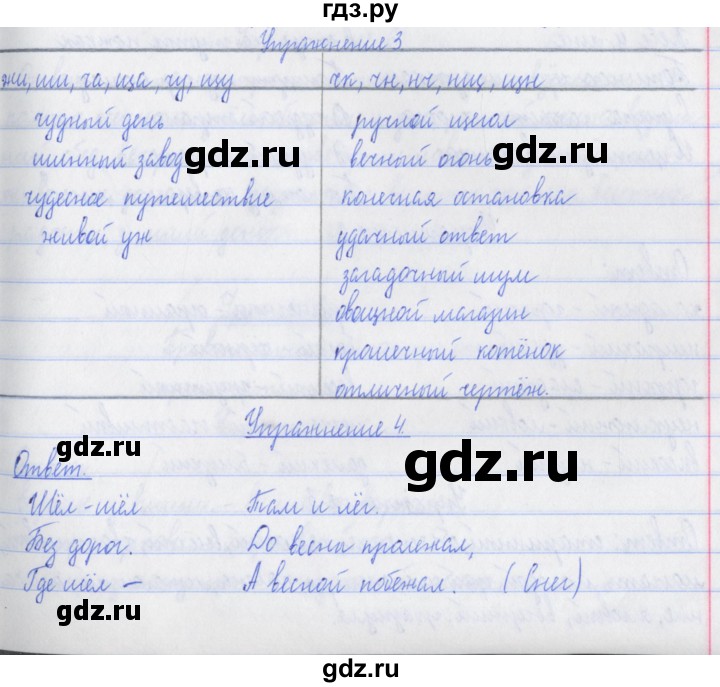 гдз.ру
Упражнение 3
жи, ши, ча, ща, чу, щу
чк, чн, нч, нщ, щн
чудный день
ручной щегол
шинный завод
вечный огонь
чудесное путешествие
конечная остановка
живой уж
удачный ответ
загадочный шум
овощной магазин
крошечный котёнок
отличный чертёж.
gdz.ru
gdz.ru
Упражнение 4.
gdz.ru
gdz.ru
Ответ.
Шёл – шёл
Там и лёг.
Без дорог.
До весны пролежал,
Где шёл –
А весной побежал. (Снег)
gdz.ru
gdz.ru
gdz.ru